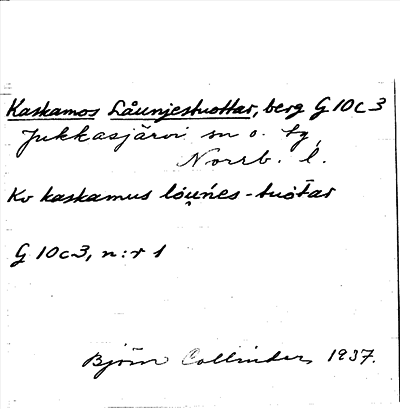 Kaskamos Låunjestuottar, berg G 10 c 3
Jukkasjärvi sn o. tg,
Norrb. l.
Kv kaskamus lou̯ńes-tuōtar
G 10 c 3, n:r 1
Björn Collinder 1937.